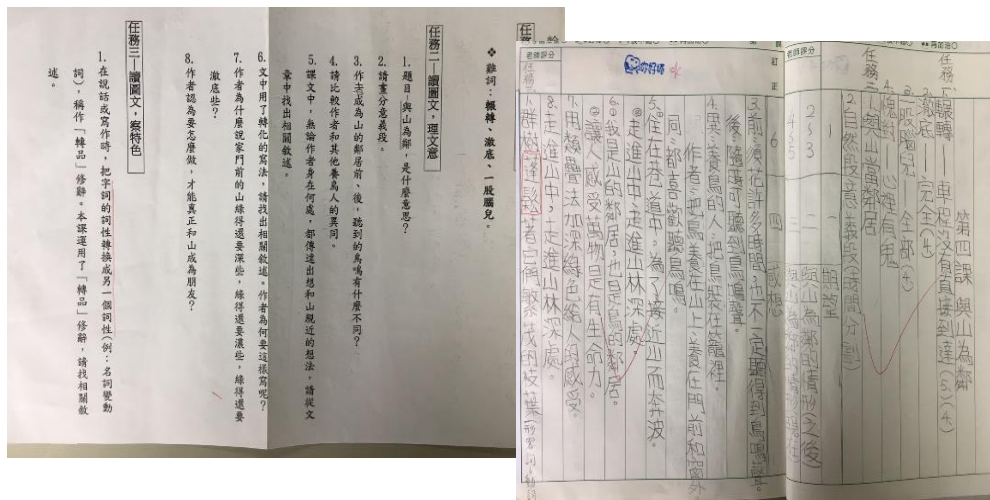 ❖ 難詞：輾轉、澈底、一股腦兒。
任務二—讀圖文，理文意
1. 題目：與山為鄰，是什麼意思？
2. 請畫分意義段。
3. 作者成為山的鄰居前、後，聽到的鳥鳴有什麼不同？
4. 請比較作者和其他養鳥人的異同。
5. 課文中，無論作者身在何處，都傳達出想和山親近的想法，請從文
章中找出相關敘述。
6. 文中用了轉化的寫法，請找出相關敘述。作者為何要這樣寫呢？
7. 作者為什麼說家門前的山綠得還要深些，綠得還要濃些，綠得還要
澈底些？
8. 作者認為要怎麼做，才能真正和山成為朋友？
任務三—讀圖文，察特色
1. 在說話或寫作時，把字詞的詞性轉換成另一個詞性(例：名詞變動
詞)，稱作「轉品」修辭。本課運用了「轉品」修辭，請找相關敘
述。
第四課 與山為鄰
任務一
2. 澈底—完全(4)
3. 一股腦兒—全部(4)
任務二
1. 與山當鄰居
2. 自然段 意義段(時間分割)
期望
2~3
4~5
6
四
感想
3. 前：須花許多時間，也不一定聽得到鳥鳴聲。
後：隨時可聽到鳥鳴聲。
4. 異：養鳥的人把鳥裝在籠裡。
作者把鳥養在山上、養在門前和窗外
同：都喜歡聽鳥鳴。
5. ①住在巷道中，為了接近山而奔波。
②走進山中，走進山林深處。
6. ①我是山的鄰居，也是鳥的鄰居。
②讓人感受萬物是有生命力。
7. 用類疊法加深綠色給人的感受。
8. 走進山中，走進山林深處。
任務三
老師評分
老師評分
訂正
你好棒